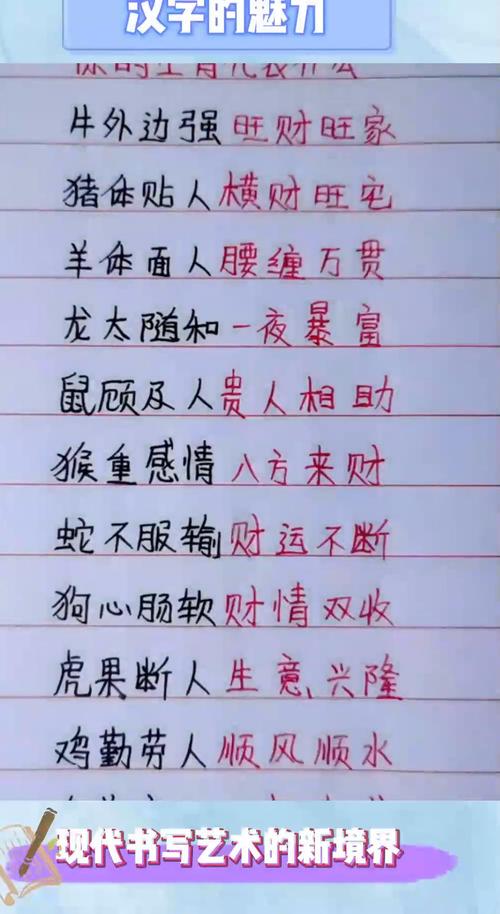 汉字的魅力
牛外边强 旺财旺家
猪体贴人 横财旺宅
羊体面人 腰缠万贯
龙太随和 一夜暴富
鼠顾及人 贵人相助
猴重感情 八方来财
蛇不服输 财运不断
狗心肠软 财情双收
虎果断人 生意兴隆
鸡勤劳人 顺风顺水
现代书写艺术的新境界